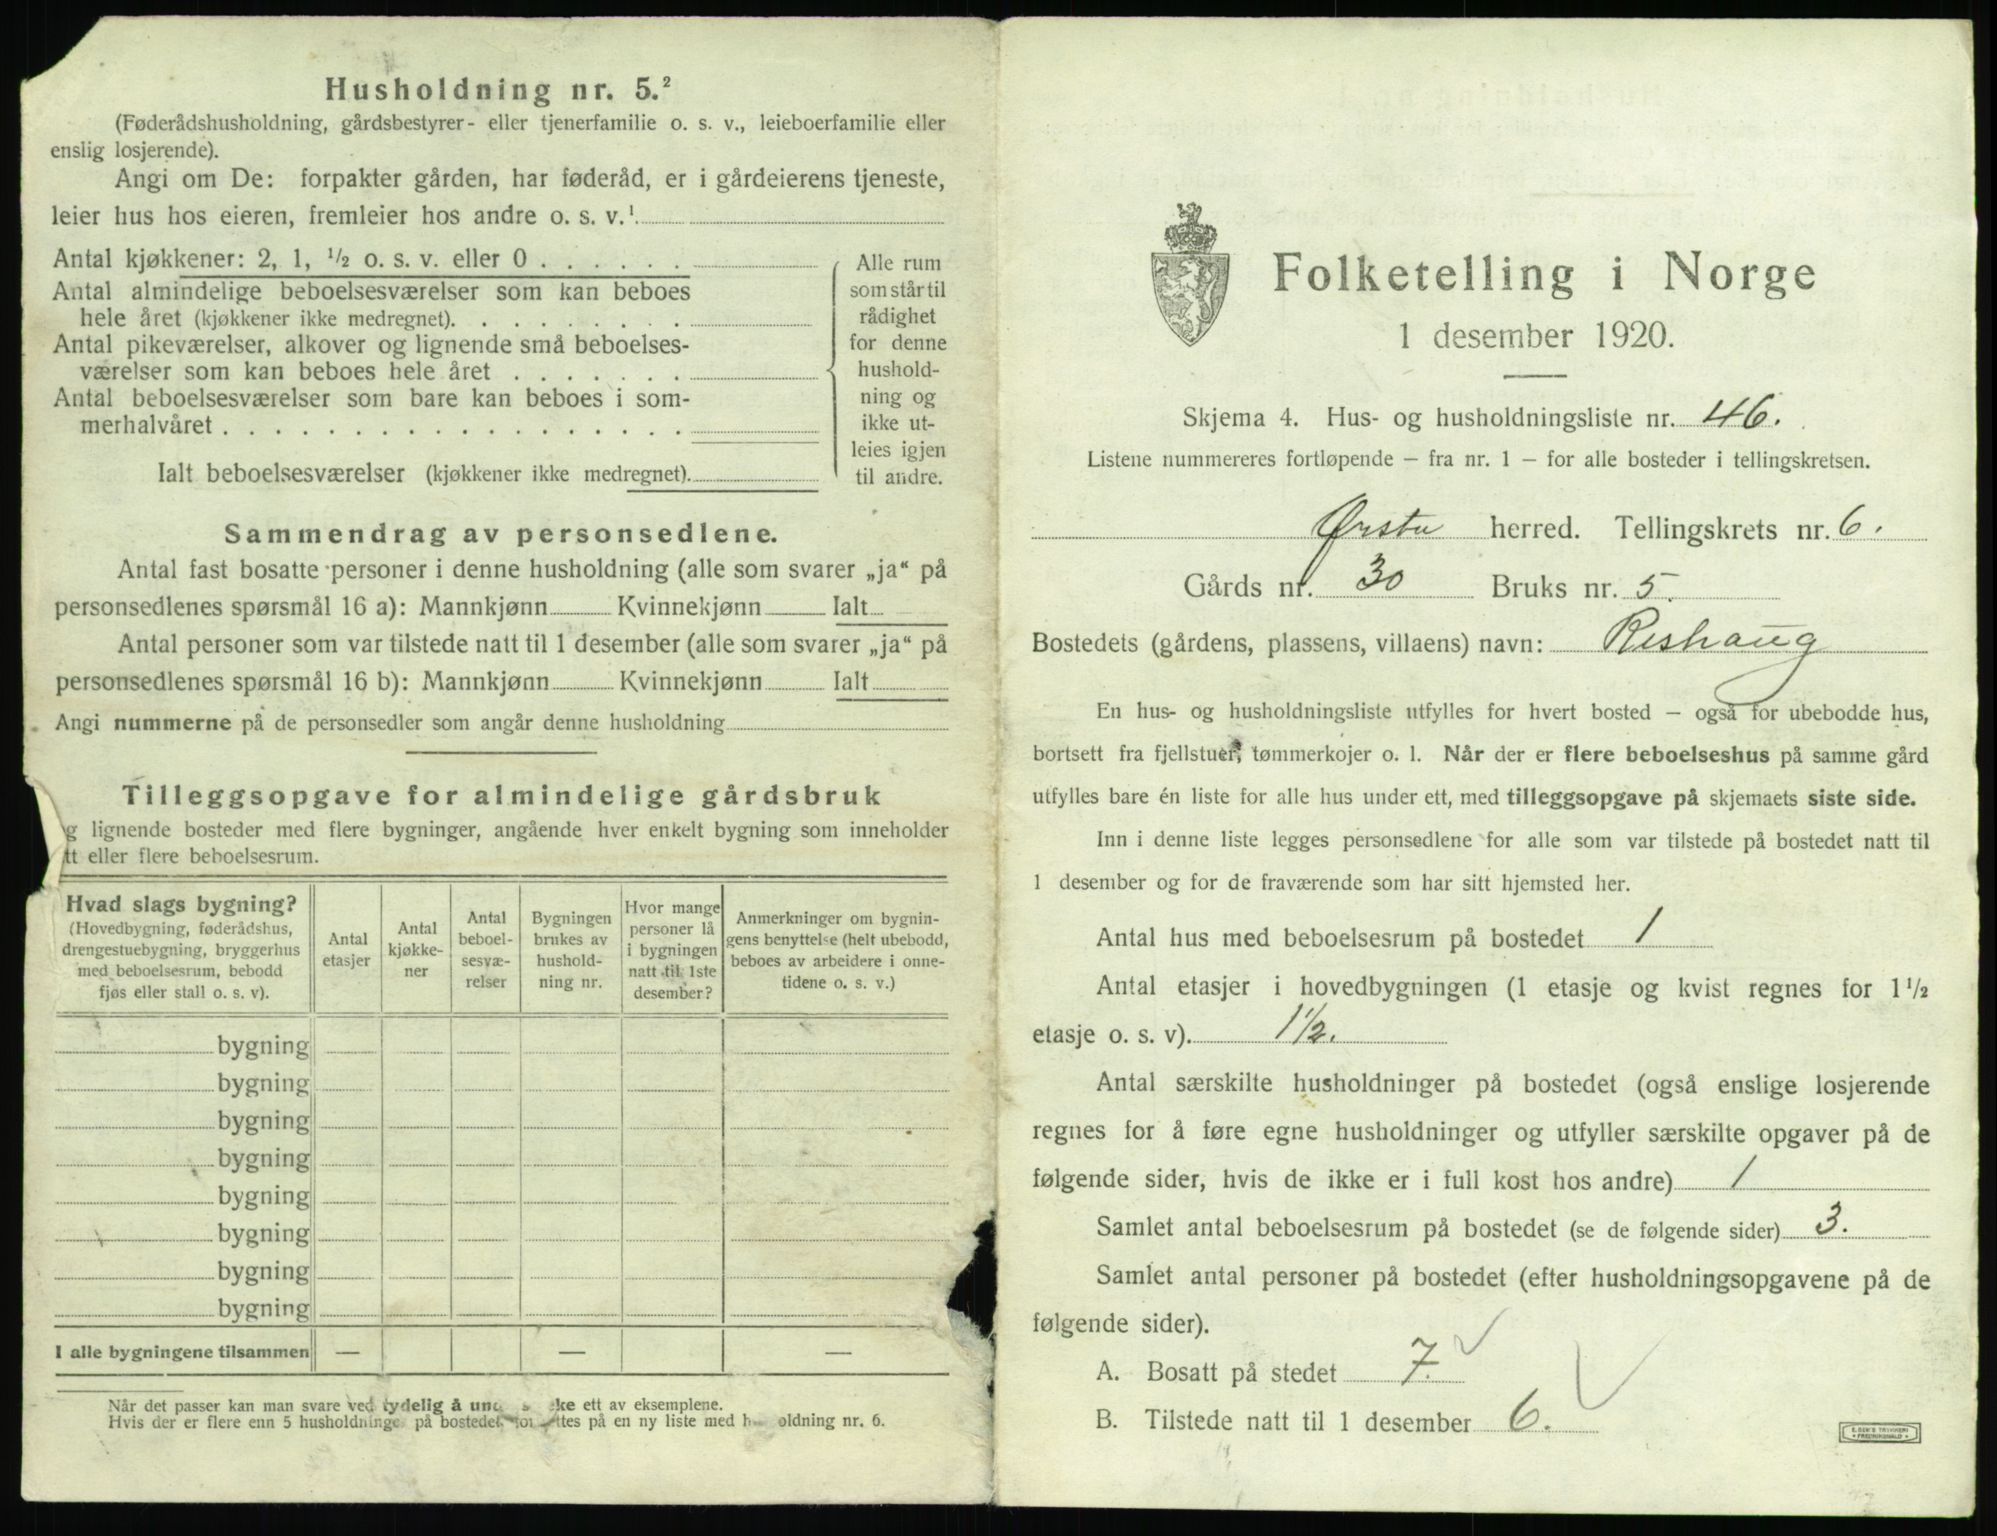 Husholdning nr. 5.²
(Føderådshusholdning, gårdsbestyrer- eller tjenerfamilie o. s. v., leieboerfamilie eller
enslig losjerende).
Angi om De: forpakter gården, har føderåd, er i gårdeierens tjeneste,
leier hus hos eieren, fremleier hos andre o. s. v.¹
Antal kjøkkener: 2, 1, ½ o. s. v. eller 0 . . . . . .
Antal almindelige beboelsesværelser som kan beboes
hele året (kjøkkener ikke medregnet). . . . . . . . .
Antal pikeværelser, alkover og lignende små beboelses-
værelser som kan beboes hele året . . . . . . .
Antal beboelsesværelser som bare kan beboes i som-
merhalvåret . . . . . . . . . . . . . . . . . .
Ialt beboelsesværelser (kjøkkener ikke medregnet).
Alle rum
som står til
rådighet
for denne
hushold-
ning og
ikke ut-
leies igjen
til andre.
Sammendrag av personsedlene.
Antal fast bosatte personer i denne husholdning (alle som svarer „ja“ på
personsedlenes spørsmål 16 a): Mannkjønn Kvinnekjønn Ialt
Antal personer som var tilstede natt til 1 desember (alle som svarer „ja“ på
personsedlenes spørsmål 16 b): Mannkjønn Kvinnekjønn Ialt
Angi nummerne på de personsedler som angår denne husholdning
Tilleggsopgave for almindelige gårdsbruk
g lignende bosteder med flere bygninger, angående hver enkelt bygning som inneholder
tt eller flere beboelsesrum.
Hvad slags bygning?
(Hovedbygning, føderådshus,
drengestuebygning, bryggerhus
med beboelsesrum, bebodd
fjøs eller stall o. s. v).
Antal
etasjer
Antal
kjøkke-
ner
Antal
beboel-
sesvæ-
relser
Bygningen
brukes av
hushold-
ning nr.
Hvor mange
personer lå
i bygningen
natt til 1ste
desember?
Anmerkninger om bygnin-
gens benyttelse (helt ubebodd,
beboes av arbeidere i onne-
tidene o. s. v.)
bygning
bygning
bygning
bygning
bygning
bygning
bygning
bygning
I alle bygningene tilsammen — — —
Når det passer kan man svare ved tydelig å un ke ett av eksemplene.
Hvis der er flere enn 5 husholdninge på bostedet ttes på en ny liste med h oldning nr. 6.
Folketelling i Norge
1 desember 1920.
Skjema 4. Hus- og husholdningsliste nr. 46.
Listene nummereres fortløpende – fra nr. 1 – for alle bosteder i tellingskretsen.
Ørsta herred. Tellingskrets nr. 6.
Gårds nr. 30 Bruks nr. 5.
Bostedets (gårdens, plassens, villaens) navn: Reshaug
En hus- og husholdningsliste utfylles for hvert bosted – også for ubebodde hus,
bortsett fra fjellstuer, tømmerkojer o. l. Når der er flere beboelseshus på samme gård
utfylles bare én liste for alle hus under ett, med tilleggsopgave på skjemaets siste side.
Inn i denne liste legges personsedlene for alle som var tilstede på bostedet natt til
1 desember og for de fraværende som har sitt hjemsted her.
Antal hus med beboelsesrum på bostedet 1
Antal etasjer i hovedbygningen (1 etasje og kvist regnes for 1½
etasje o. s. v). 1½.
Antal særskilte husholdninger på bostedet (også enslige losjerende
regnes for å føre egne husholdninger og utfyller særskilte opgaver på de
følgende sider, hvis de ikke er i full kost hos andre) 1
Samlet antal beboelsesrum på bostedet (se de følgende sider) 3.
Samlet antal personer på bostedet (efter husholdningsopgavene på de
følgende sider).
A. Bosatt på stedet 7.
B. Tilstede natt til 1 desember 6.